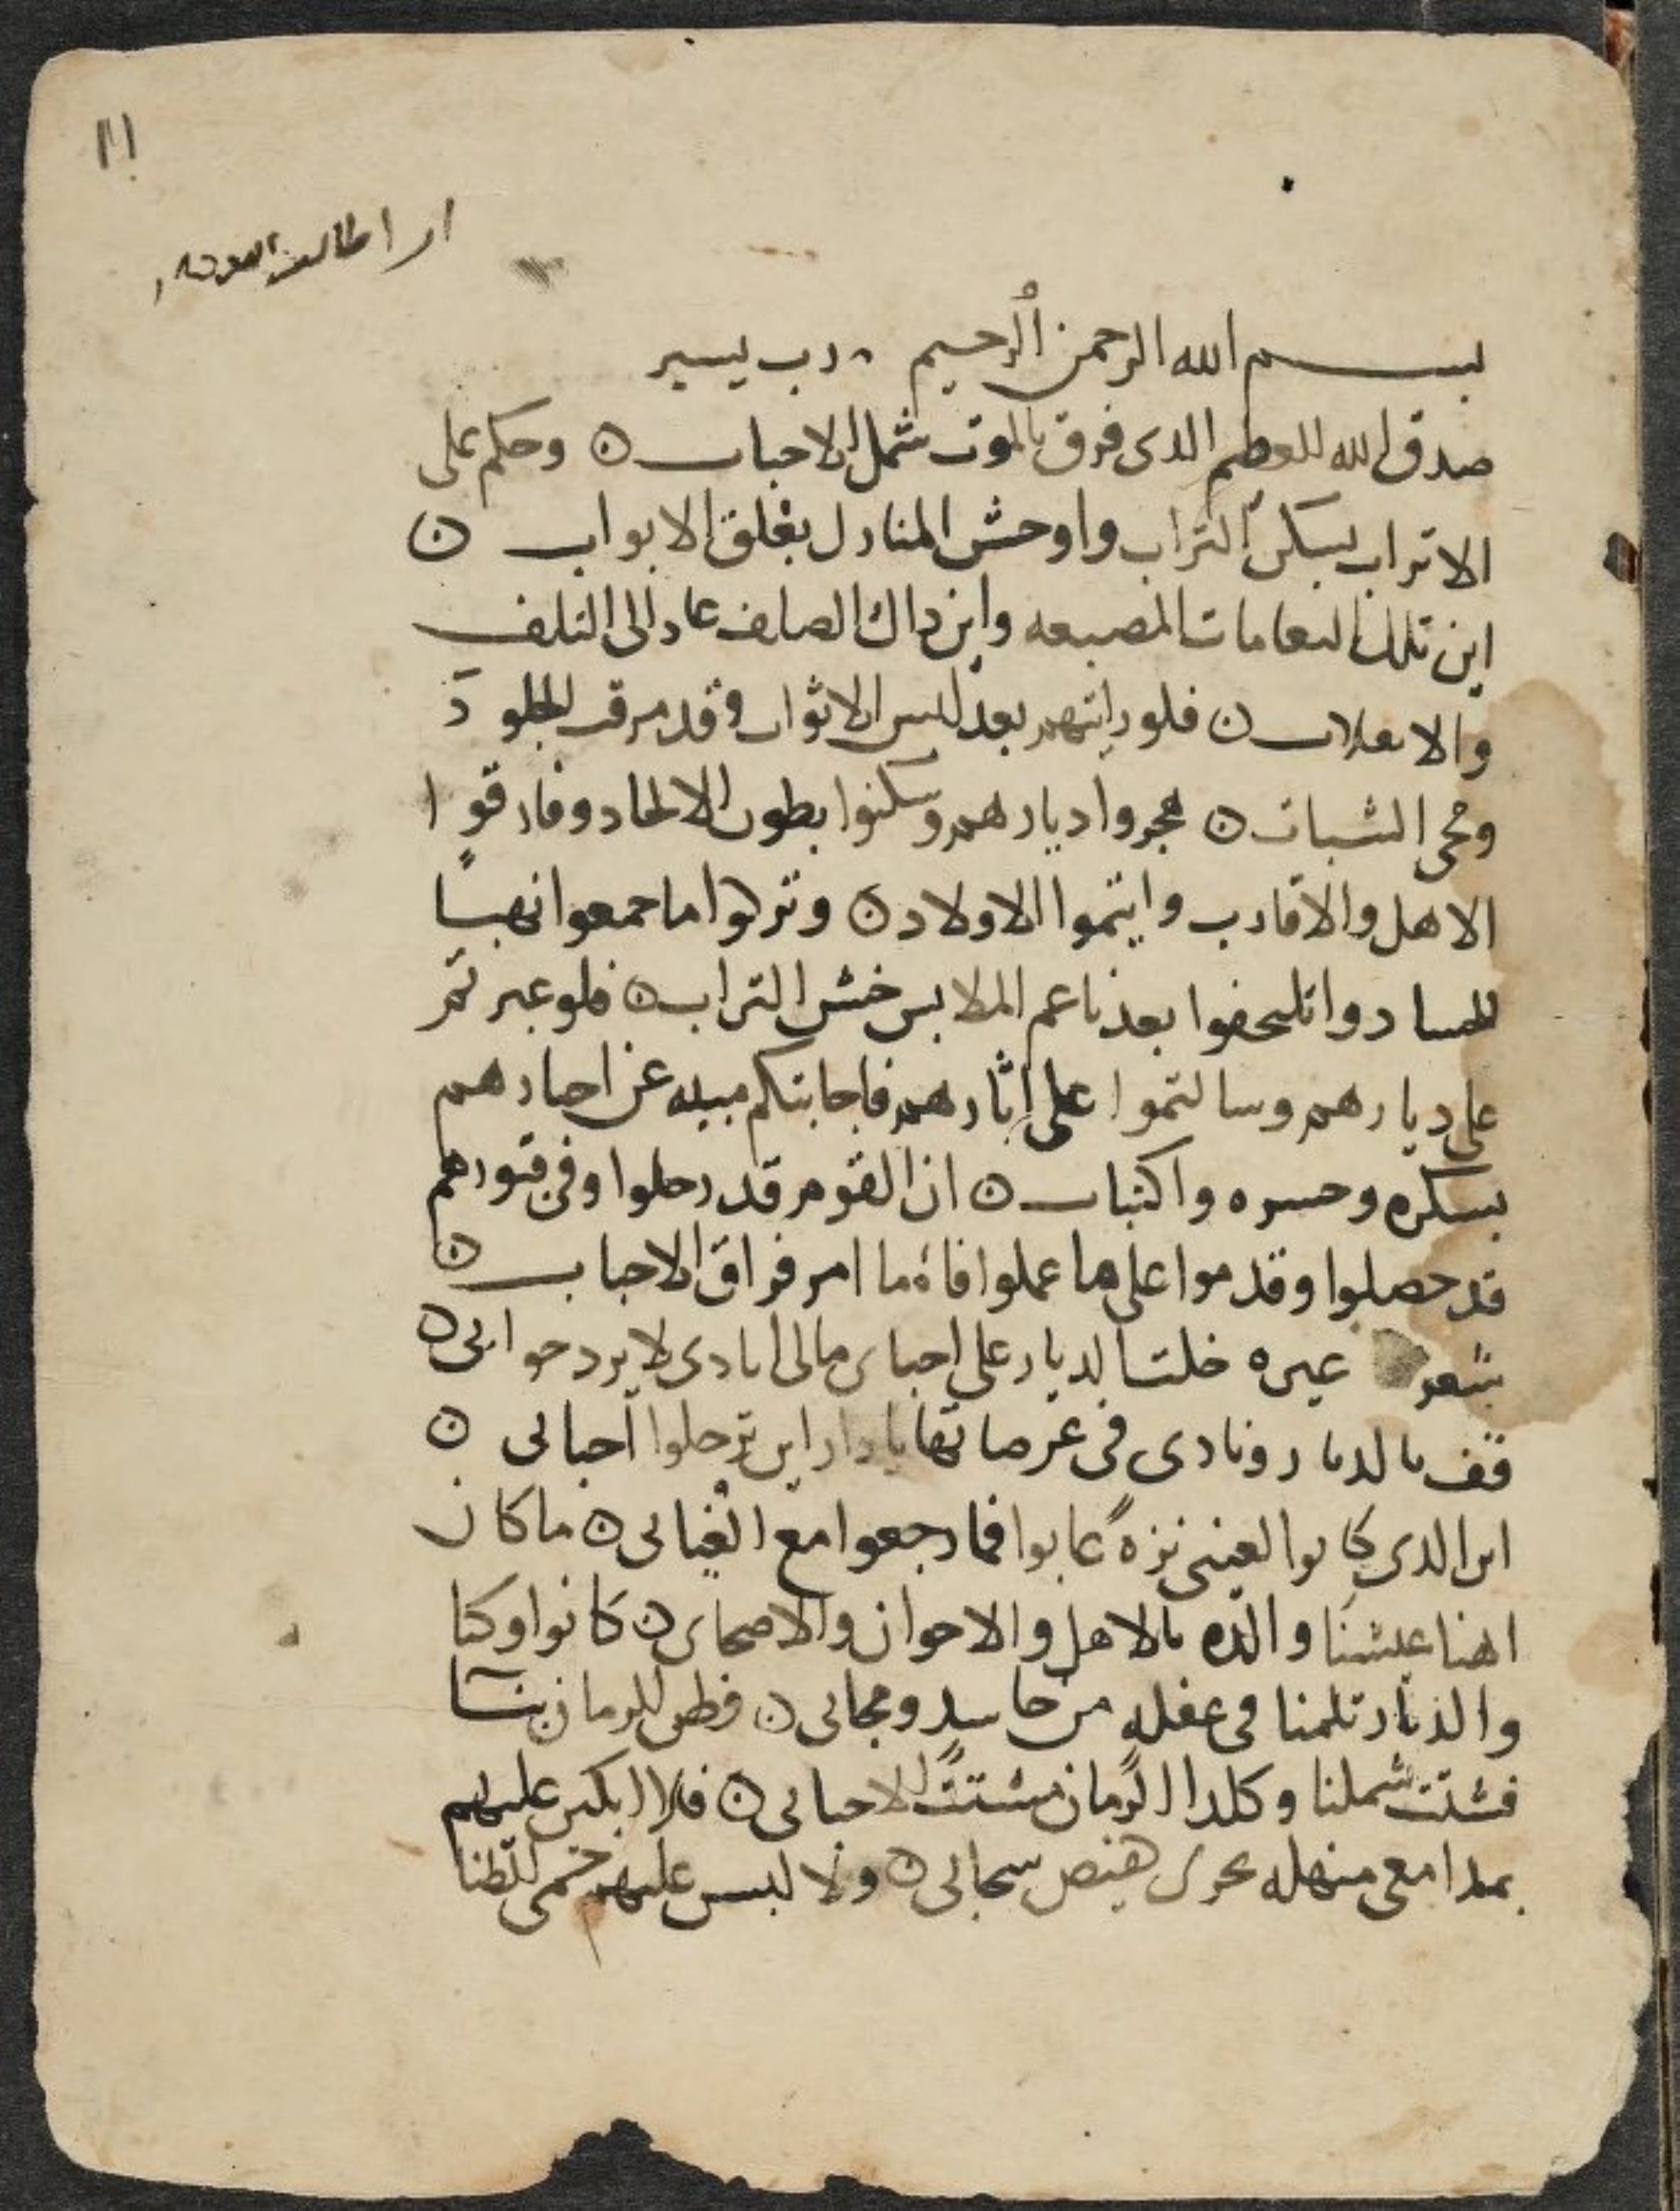 ١١
بسم الله الرحمن الرحيم ٠ رب يسير
صدق الله العظيم الدى فرق بالموت شمل الاحباب ن وحكم على
الاتراب بسكن التراب واوحش المنازل بغلق الابواب ن
اين تلك المصيعه واين داك الصلف عاد الى التلف
والا ن فلو رايتهم بعد لبس الاثواب وقد مرقت الجلود
ومحى الشباب ن هجروا ديارهم وسكنوا بطون الالحاد وفارقوا
الاهل والاقارب وايتموا الاولاد ن وتركوا ما جمعوا نهبًا
للحساد واتلحفوا بعد ناعم الملابس خشن التراب ن فلو عبرتم
على ديارهم وسالتموا على اثارهم فاجابتكم مبيه عن احبارهم
بسكره وحسره واكتباب ن ان القوم قد رحلوا وفى قبورهم
قد حصلوا وقدموا على ما عملوا فاه ما امر فراق الاحباب ن
شعر عيره خلت الديار على احبابى مالى انادى لا يرد حوابى ن
قف بالديار ونادى فى عرصاتها يا دار اين ترحلوا احبابى ن
اين الدى كانوا لعينى نزهً عابوا فما رجعوا مع الغيابى ن ما كان
اهنا عيشنا والده بالاهل والاحوان والاصحابى ن كانوا وكنا
والديار تلمنا فى عفله من حاسد ومحابى ن فطن الزمان بنا
فشتت شملنا وكدا الزمان مشتت الاحبابى ن فلا ابكين عليهم
بمدامعى منهله تجرى سحابى ن ولا لبس عليهم